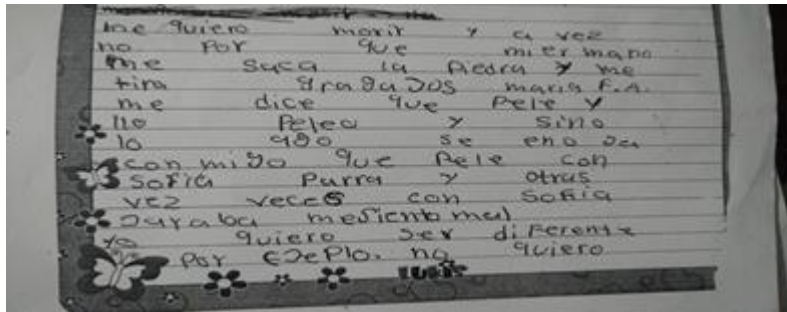 me quiero morir y a vez
no por que mi er mano
me saca la piedra y me
tira maria F.A.
me dice que pele y
llo peleo y sino
lo ago se eno Ja
con migo que pele con
Sofia Parra y otras
vez veces con Sofia
Jaraba mesiento mal
yo quiero ser diferente
por eJePlo. no quiero